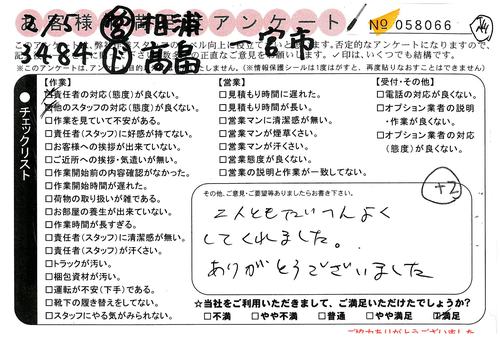 2/25 営 相浦 一宮市
3484 ド 高畠
アンケート
No 058066
※このアンケートは、
(※情報保護シールは1度はがすと、再度貼りなおすことはできません)
チェックリスト
【作業】
責任者の対応(態度)が良くない。
他のスタッフの対応(態度)が良くない。
□作業を見ていて不安がある。
□責任者(スタッフ)に好感が持てない。
□お客様への挨拶が出来ていない。
□ご近所への挨拶・気遣いが無い。
□作業開始前の内容確認がなかった。
□作業開始時間が遅れた。
□荷物の取り扱いが雑である。
□お部屋の養生が出来ていない。
□作業時間が長すぎる。
□責任者(スタッフ)に清潔感が無い。
□責任者(スタッフ)が汗くさい。
□トラックが汚い。
□梱包資材が汚い。
□運転が不安(下手)である。
□靴下の履き替えをしてない。
□スタッフにやる気がみられない。
【営業】
□見積もり時間に遅れた。
□見積もり時間が長い。
□営業マンに清潔感が無い。
□営業マンが煙草くさい。
□営業マンが汗くさい。
□営業態度が良くない。
□営業の説明と作業が一致してない。
【受付・その他】
□電話の対応が良くない。
□オプション業者の説明
・作業が良くない。
□オプション業者の対応
(態度)が良くない。
+2
その他、ご意見・ご要望等ありましたらお書き下さい。
2人ともたいへんよく
してくれました。
ありがとうございました
☆当社をご利用いただきまして、ご満足いただけたでしょうか?
□不満 □やや不満 □普通 □やや満足 満足
ご協力ありがとうございました